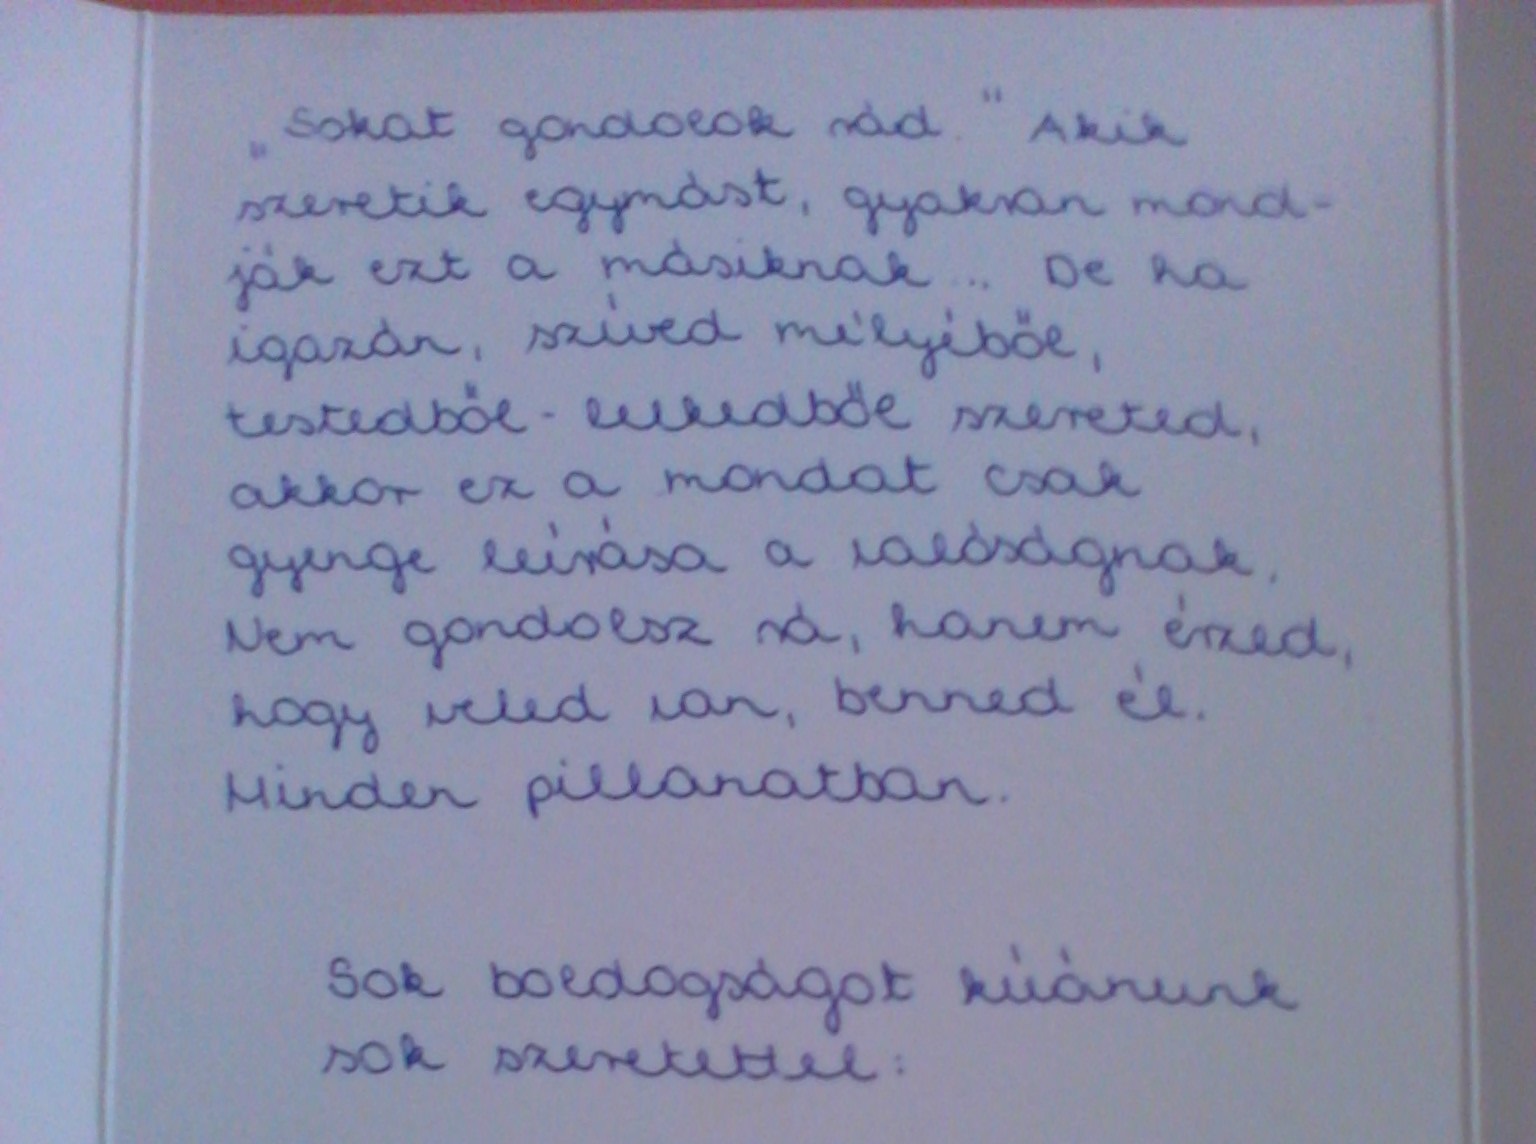 „Sokat gondolok rád." Akik
szeretik egymást, gyakran mond-
ják ezt a másiknak... De ha
igazán, szíved mélyéből,
testedből-lelkedből szereted,
akkor ez a mondat csak
gyenge leírása a valóságnak.
Nem gondolsz rá, hanem érzed,
hogy veled van, benned él.
Minden pillanatban.
Sok boldogságot kívánunk
sok szeretettel: